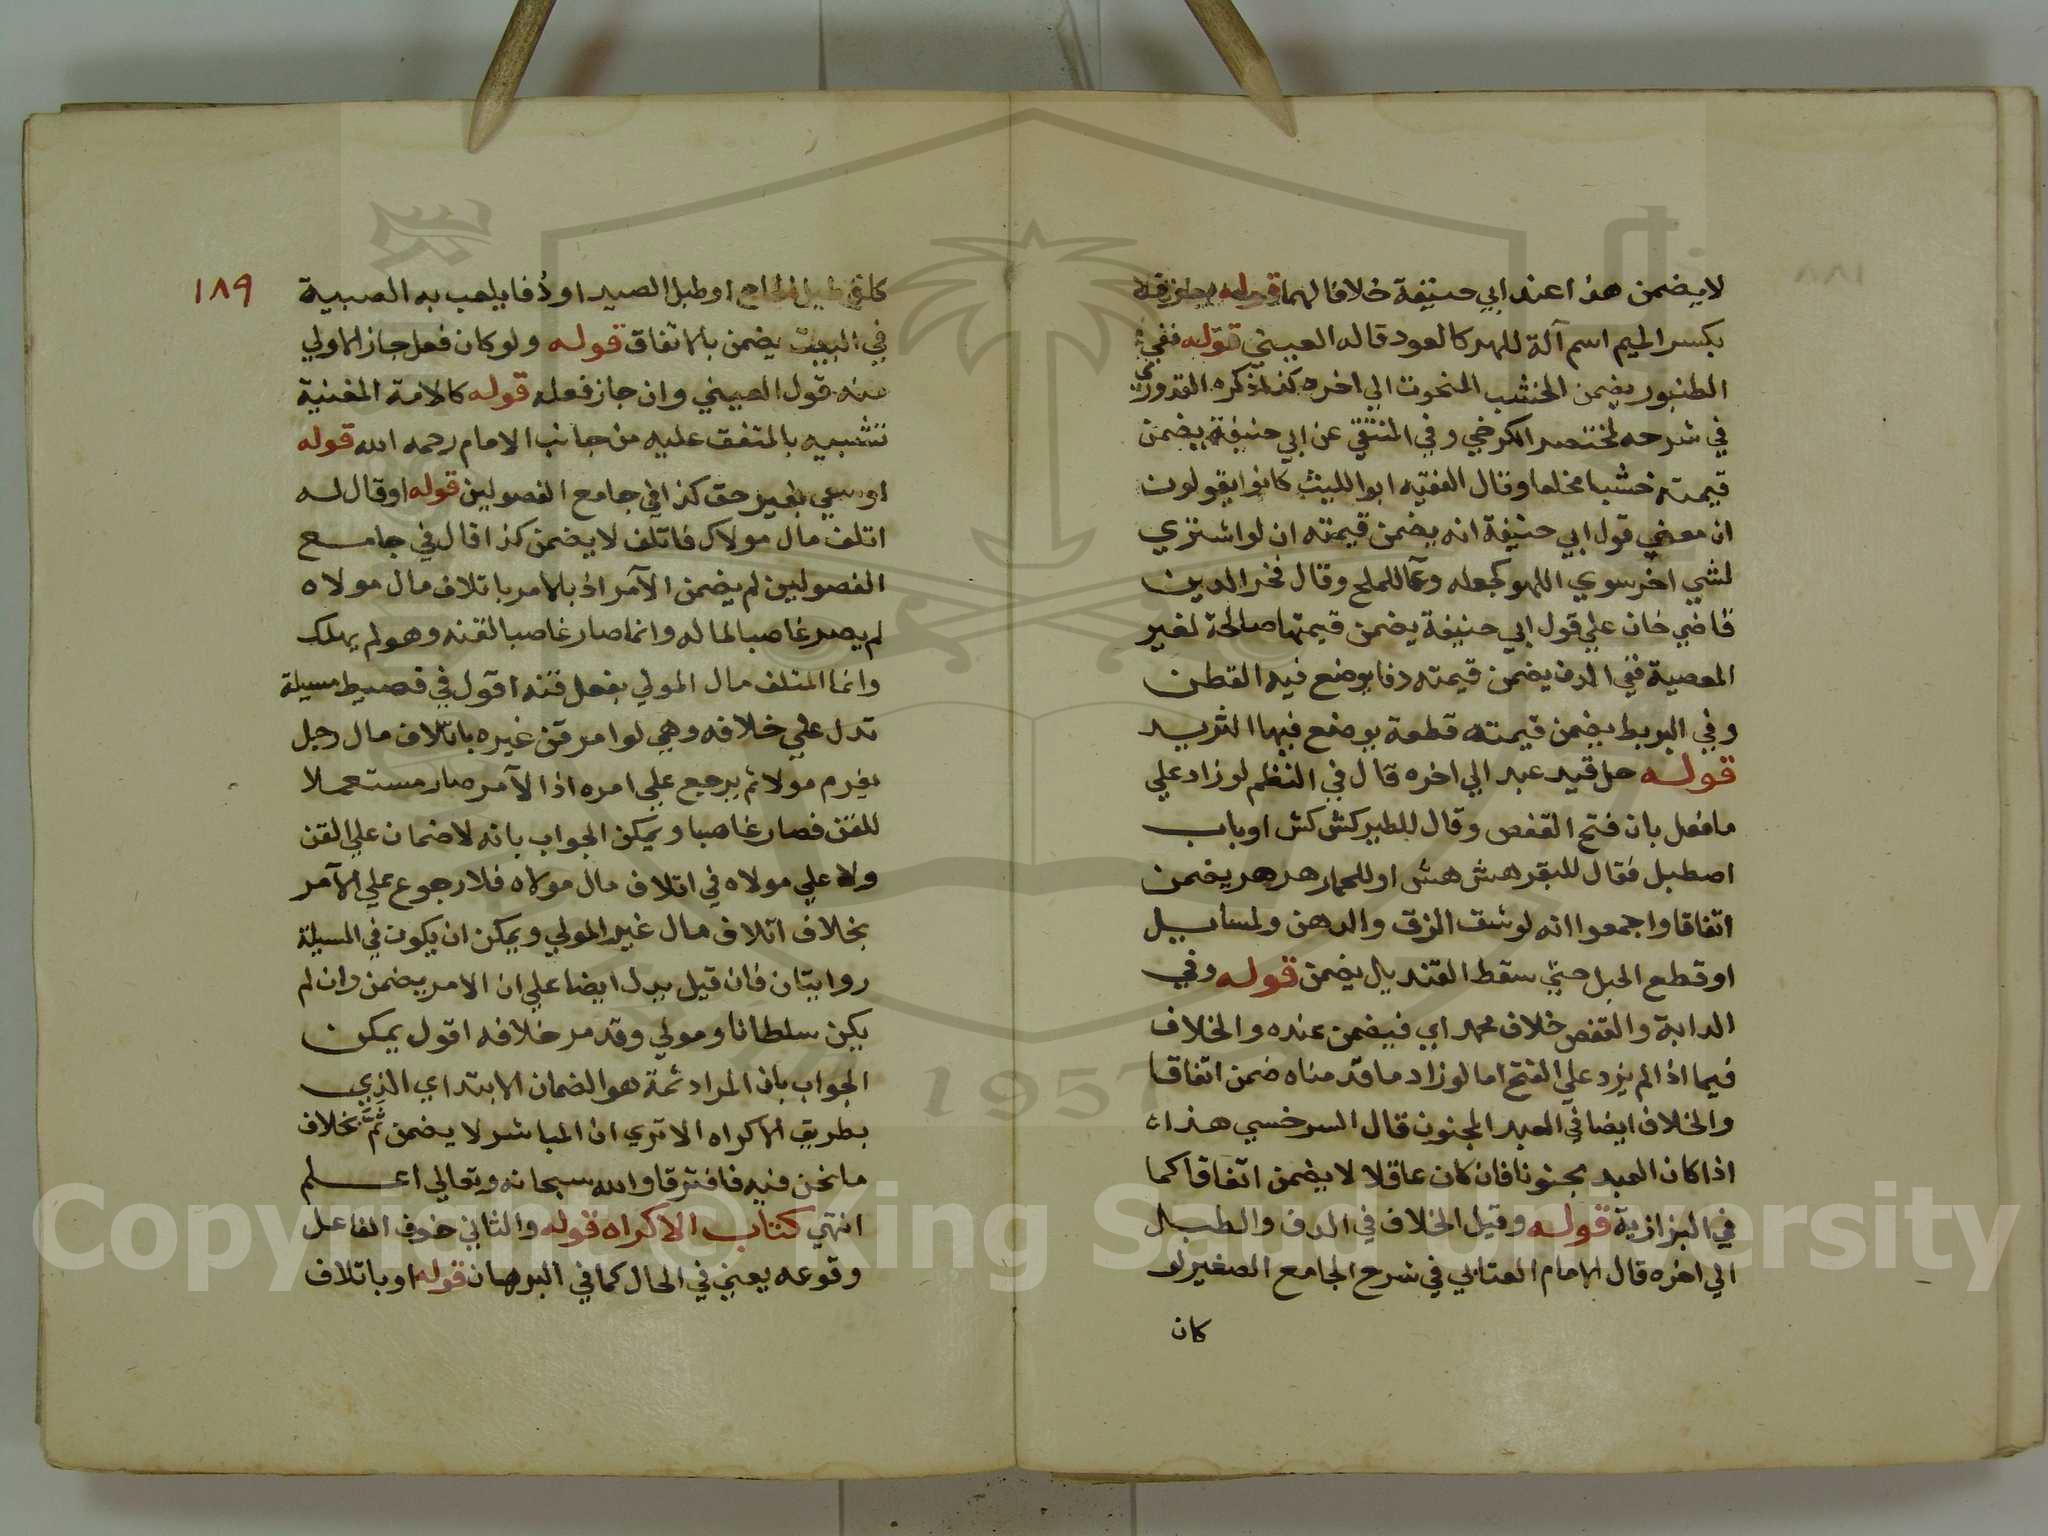 لا يضمن هذا عند ابي حنيفة خلافا لهما قوله معزفة
بكسر الميم اسم آلة للهو كالعود قاله العيني قوله ففي
الطنبور يضمن الخشب المنحوت الي اخره كذا ذكره القدوري
في شرحه لمختصر الكرخي وفي المنتقي عن ابي حنيفة يضمن
قيمته خشبا مخلعا وقال الفقيه ابوا الليث كانوا يقولون
ان معني قول ابي حنيفة انه يضمن قيمته ان لو اشتري
لشي اخر سوي اللهو كجعله وعآ للملح وقال فخر الدين
قاضي خان علي قول ابي حنيفة يضمن قيمتها صالحة لغير
المعصية ففي الدف يضمن قيمته دفا يوضع فيه القطن
وفي البربط يضمن قيمته قطعة يوضع فيها الثريد
قوله حل قيد عبد الي اخره قال في النظم لو زاد علي
ما فعل بان فتح القفص وقال للطير كش كش او باب
اصطبل فقال للبقر هش هش او للحمار هر هر يضمن
اتفاقا واجمعوا انه لو شق الزق والدهن ولسايل
او قطع الحبل حتي سقط القنديل يضمن قوله وفي
الدابة والقفص خلاف محمد اي فيضمن عنده والخلاف
فيما اذا لم يزد علي الفتح اما لو زاد ما قدمناه ضمن اتفاقا
والخلاف ايضا في العبد المجنون قال السرخسي هذا
اذا كان العبد مجنونا فان كان عاقلا لا يضمن اتفاقا كما
في البزازية قوله وقيل الخلاف في الدف والطبل
الي اخره قال الامام العتابي في شرح الجامع الصغير لو
كان
١٨٩
كا في طبل الحاج او طبل الصيد او دُفا يلعب به الصبية
في البيت يضمن بالاتفاق قوله ولو كان فعل جاز الاولي
منه قول العيني وان جاز فعله قوله كالامة المغنية
تشبيه بالمتفق عليه من جانب الامام رحمه الله قوله
او سعي بغير حق كذا في جامع الفصولين قوله او قال له
اتلف مال مولاك فاتلف لا يضمن كذا قال في جامع
الفصولين لم يضمن الآمر اذ بالامر باتلاف مال مولاه
لم يصر غاصبا لماله وانما صار غاصبا لقنه وهو لم يهلك
وانما المتلف مال المولي بفعل قنه اقول في فصيط مسيلة
تدل علي خلافه وهي لو امر قن غيره باتلاف مال رجل
يغرم مولا ثم يرجع علي امره اذا الآمر صار مستعملا
للقن فصار غاصبا ويمكن الجواب بانه لا ضمان علي القن
ولا علي مولاه في اتلاف مال مولاه فلا رجوع علي الآمر
بخلاف اتلاف مال غير المولي ويمكن ان يكون في المسيلة
روايتان فان قيل يدل ايضا علي ان الامر يضمن وان لم
يكن سلطانا ومولي وقد مر خلافه اقول يمكن
الجواب بان المراد ثمة هو الضمان الابتداي الذي
بطريق الاكراه الا تري ان المباشر لا يضمن ثَمَّ بخلاف
ما نحن فيه فافترقا والله سبحانه وتعالي اعلم
انتهي كتاب الاكراه قوله والثاني خوف الفاعل
وقوعه يعني في الحال كما في البرهان قوله او باتلاف
Copyright © King Saud University
1957